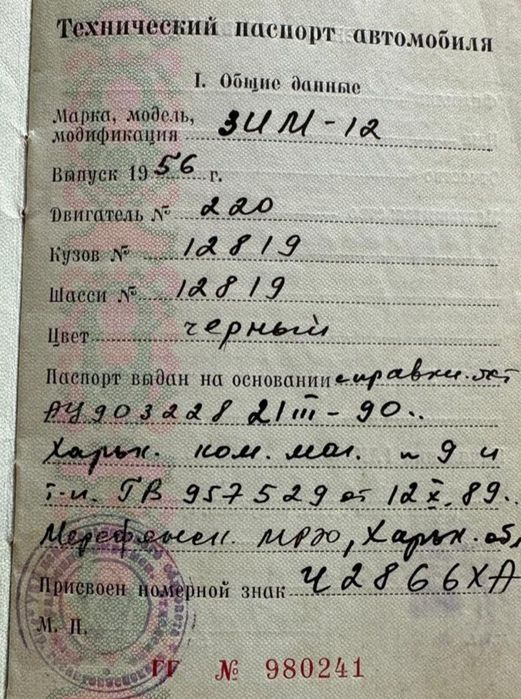 Технический паспорт автомобиля
I. Общие данные
Марка, модель,
модификация ЗИМ-12
Выпуск 1956 г.
Двигатель № 220
Кузов № 12819
Шасси № 12819
Цвет черный
Паспорт выдан на основании справки
АУ 903228 21 III - 90.
Харьк. ком. маг. 9 и
т-п. ГВ 957529 от 12 X. 89.
МРЭО, Харьк. обл
Присвоен номерной знак Ч2866ХА
М. П.
ГГ № 980241